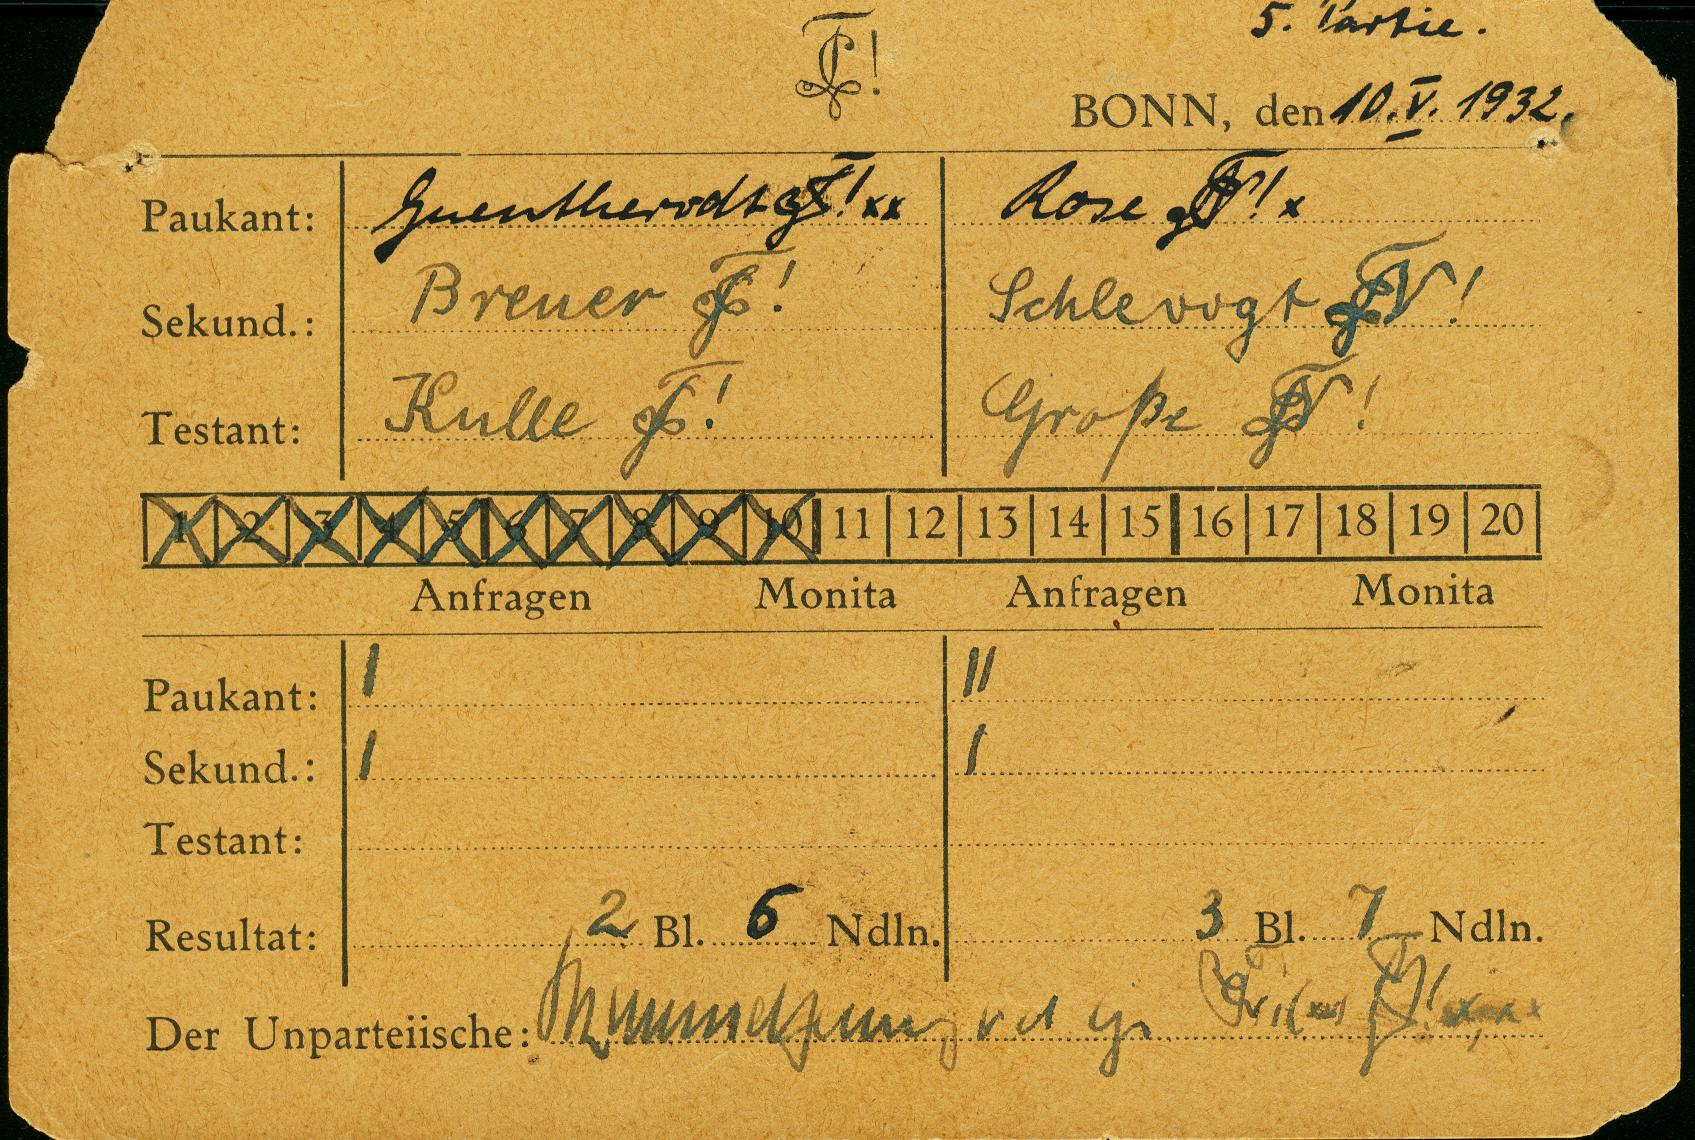 5. Partie.
BONN, den 10.V. 1932.
Paukant: Guentherodt xx Rose x
Sekund.: Breuer ! Schlevogt !
Testant: Kulle ! Große !
1 2 3 4 5 6 7 8 9 10 11 12 13 14 15 16 17 18 19 20
Anfragen Monita Anfragen Monita
Paukant: I II
Sekund.: I I
Testant:
Resultat: 2 Bl. 6 Ndln. 3 Bl. 7 Ndln.
Der Unparteiische: